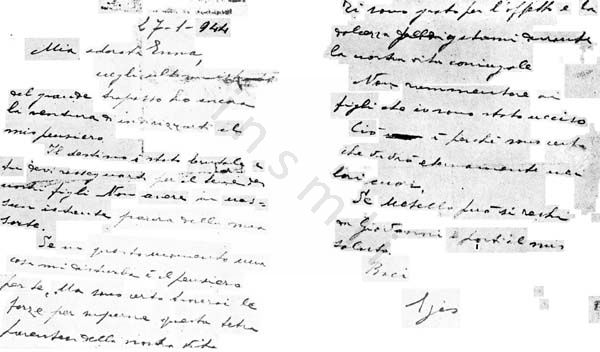 27-1-944
Mia adorata Enna,
negli ultimi
del grande trapasso ho ancora
la ventura di indirizzarti il
mio pensiero.
Il destino è stato brutale e
tu devi rassegnarti per il bene dei
nostri figli. Non avere in nes-
sun istante paura della mia
sorte.
Se in questo momento una
cosa mi disturba è il pensiero
per te. Ma sono certo troverai le
forze per superare questa tetra
parentesi della nostra vita
Ti sono grato per l'affetto e la
dolcezza durante
la nostra vita coniugale.
Non rammentare ai
figli che io sono stato ucciso
Ciò è perché sono certo
che vivrò eternamente nei
loro cuori.
Se Metello può si rechi
da Giovanni e porti il mio
saluto.
Baci